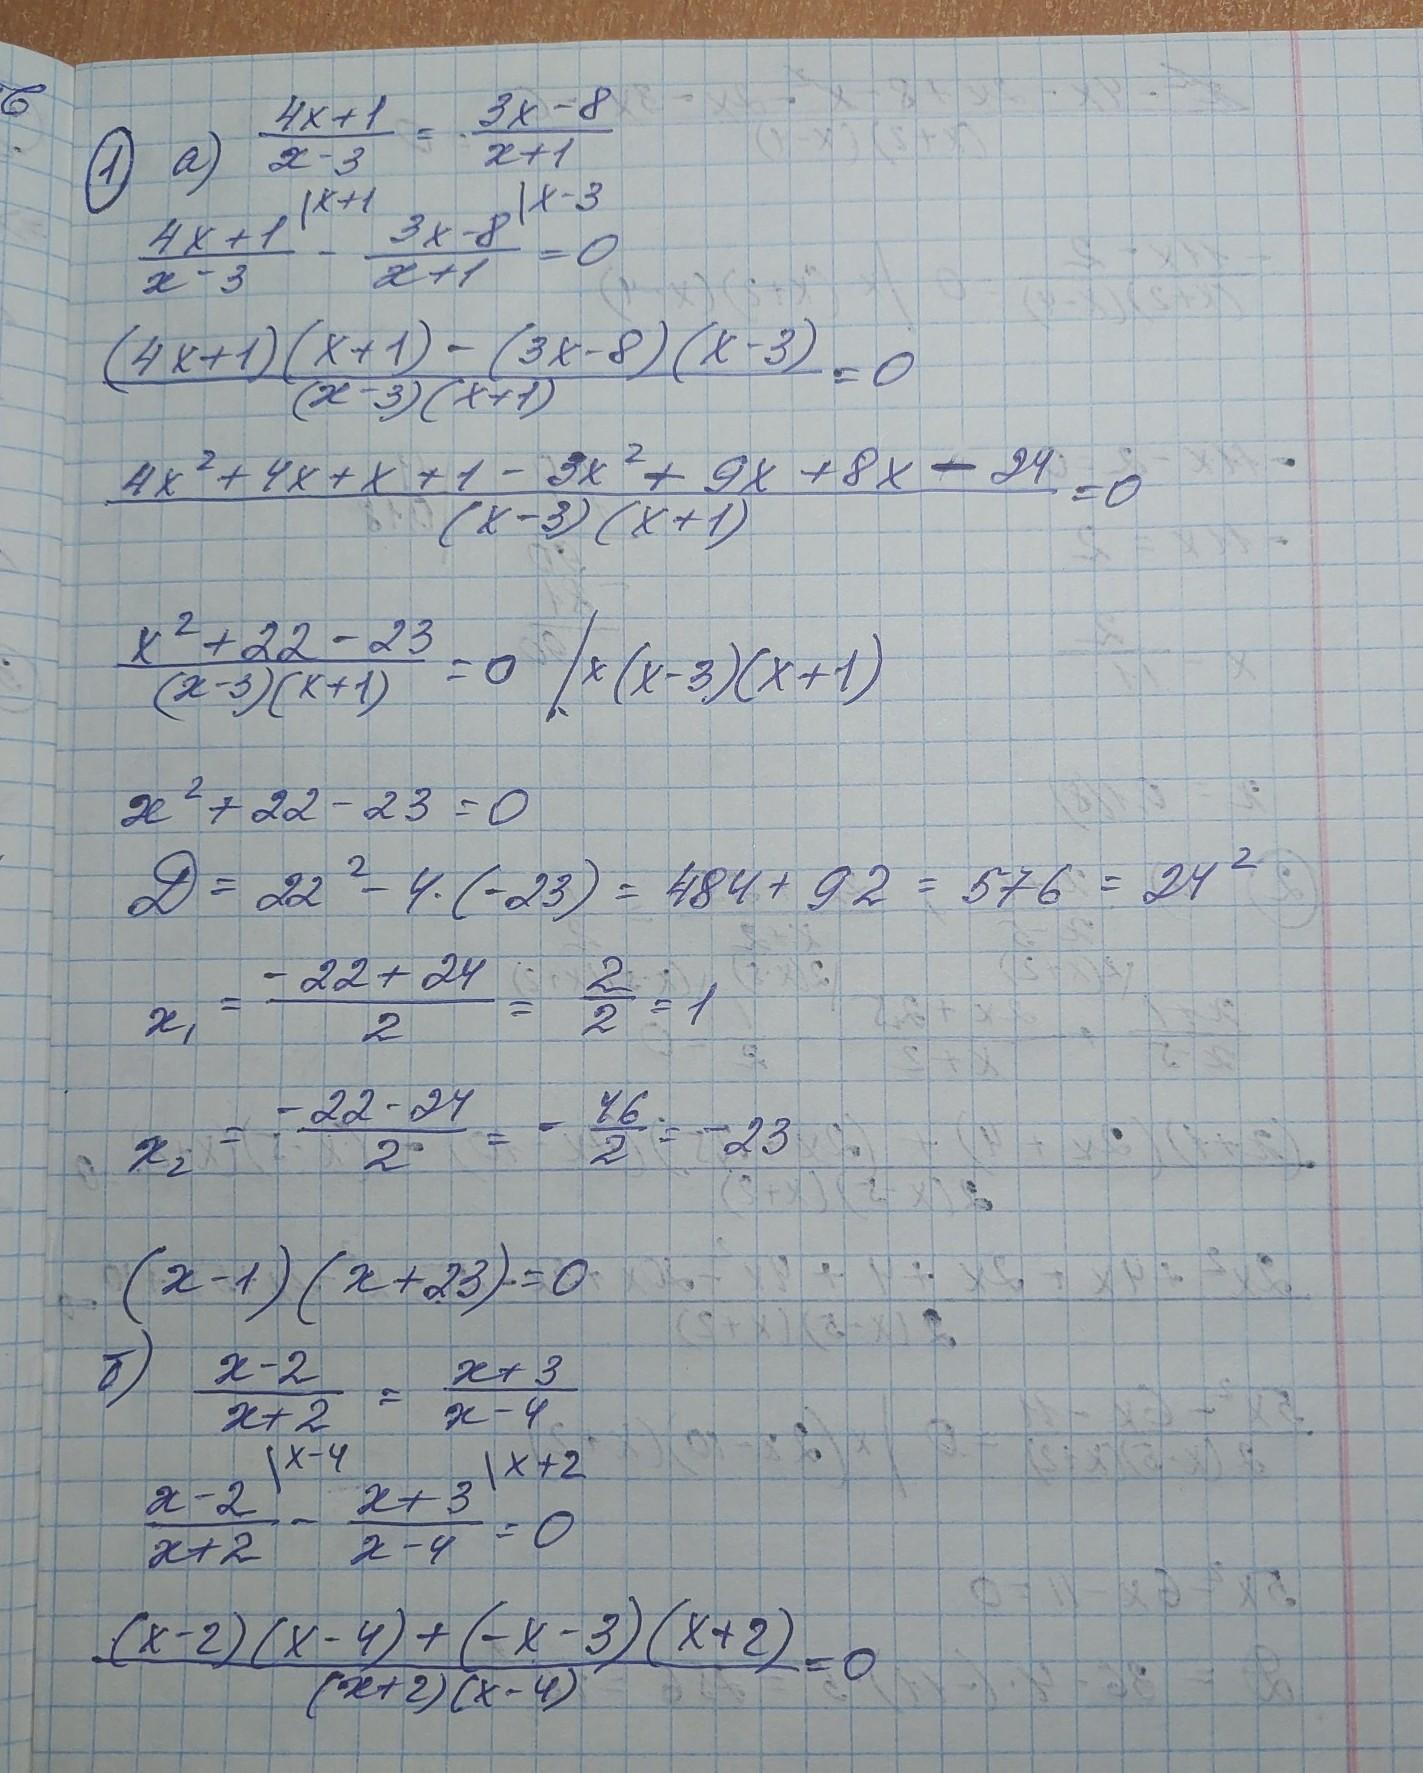 ① а) (4x+1)/(x-3) = (3x-8)/(x+1)
(4x+1)/(x-3) |x+1 - (3x-8)/(x+1) |x-3 = 0
((4x+1)(x+1) - (3x-8)(x-3))/((x-3)(x+1)) = 0
(4x² + 4x + x + 1 - 3x² + 9x + 8x - 24)/((x-3)(x+1)) = 0
(x² + 22 - 23)/((x-3)(x+1)) = 0 / x (x-3)(x+1)
x² + 22 - 23 = 0
Д = 22² - 4·(-23) = 484 + 92 = 576 = 24²
x₁ = (-22 + 24)/2 = 2/2 = 1
x₂ = (-22 - 24)/2 = - 46/2 = -23
(x-1)(x+23) = 0
б) (x-2)/(x+2) = (x+3)/(x-4)
(x-2)/(x+2) |x-4 - (x+3)/(x-4) |x+2 = 0
((x-2)(x-4) + (-x-3)(x+2))/((x+2)(x-4)) = 0